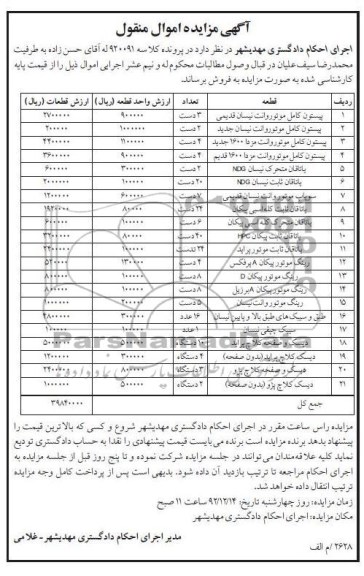 آگهی مزایده اموال منقول
اجرای احکام دادگستری مهدیشهر در نظر دارد در پرونده کلاسه ۹۲۰۰۹۱ له آقای حسن زاده به طرفیت
محمدرضا سیف علیان در قبال وصول مطالبات محکوم له و نیم عشر اجرایی اموال ذیل را از قیمت پایه
کارشناسی شده به صورت مزایده به فروش برساند.
ردیف قطعه تعداد ارزش واحد قطعه (ریال) ارزش قطعات (ریال)
۱ پیستون کامل موتور وانت نیسان قدیمی ۳ دست ۹۰۰۰۰۰ ۲۷۰۰۰۰۰
۲ پیستون کامل موتور وانت نیسان جدید ۲ دست
۳ پیستون کامل موتور وانت مزدا ۱۶۰۰ جدید ۴ دست ۱۱۰۰۰۰۰ ۴۴۰۰۰۰۰
۴ پیستون کامل موتور وانت مزدا ۱۶۰۰ قدیم ۴ دست ۹۰۰۰۰۰ ۳۶۰۰۰۰۰
۵ یاتاقان متحرک نیسان NDG ۲ دست ۳۰۰۰۰۰ ۶۰۰۰۰۰
۶ یاتاقان ثابت نیسان NDG
۷ سوپاپ موتور وانت نیسان قدیمی
۸ یاتاقان ثابت کله اسبی پیکان ۲۴ دست ۸۰۰۰۰ ۱۹۲۰۰۰۰
۹ یاتاقان متحرک کله اسبی پیکان ۶ دست ۱۰۰۰۰۰ ۶۰۰۰۰۰
۱۰ یاتاقان ثابت پیکان ۴۰ دست ۸۰۰۰۰ ۳۲۰۰۰۰۰
۱۱ یاتاقان ثابت موتور پراید ۲۴ دست ۱۰۰۰۰۰
۱۲ رینگ موتور پیکان A پرفکس ۴ دست ۱۳۰۰۰۰ ۵۲۰۰۰۰
۱۳ رینگ موتور پیکان D ۸ دست ۱۰۰۰۰۰ ۸۰۰۰۰۰
۱۴ رینگ موتور پیکان A برزیل ۸ دست ۱۰۰۰۰۰ ۸۰۰۰۰۰
۱۵ رینگ موتور وانت نیسان ۵ دست ۲۰۰۰۰۰ ۱۰۰۰۰۰۰
۱۶ طبق و سیبک های طبق بالا و پایین نیسان ۱۶ عدد ۳۰۰۰۰۰ ۴۸۰۰۰۰۰
۱۷ سیبک چپقی نیسان ۱ عدد ۱۰۰۰۰۰ ۱۰۰۰۰۰
۱۸ دیسک و صفحه کلاچ پراید ۱۰ دستگاه ۵۰۰۰۰۰ ۵۰۰۰۰۰۰
۱۹ دیسک کلاچ پراید (بدون صفحه) ۴ دستگاه ۳۰۰۰۰۰ ۱۲۰۰۰۰۰
۲۰ دیسک و صفحه کلاچ پژو ۳ دستگاه ۸۰۰۰۰۰ ۲۴۰۰۰۰۰
۲۱ دیسک کلاچ پژو (بدون صفحه) ۲ دستگاه ۵۰۰۰۰۰ ۱۰۰۰۰۰۰
جمع کل ۳۹۸۴۰۰۰۰
مزایده راس ساعت مقرر در اجرای احکام دادگستری مهدیشهر شروع و کسی که بالاترین قیمت را
پیشنهاد بدهد برنده مزایده است برنده می بایست قیمت پیشنهادی را نقدا به حساب دادگستری تودیع
نماید کلیه علاقه مندان می توانند در جلسه مزایده شرکت نموده و تا پنج روز قبل از جلسه مزایده به
اجرای احکام مراجعه تا ترتیب بازدید آن داده شود. بدیهی است پس از پرداخت کامل وجه مزایده
ترتیب انتقال داده خواهد شد.
زمان مزایده: روز چهارشنبه تاریخ: ۹۲/۱۲/۱۴ ساعت ۱۱ صبح
مکان مزایده: اجرای احکام دادگستری مهدیشهر
مدیر اجرای احکام دادگستری مهدیشهر - غلامی
۲۶۲۸/م الف